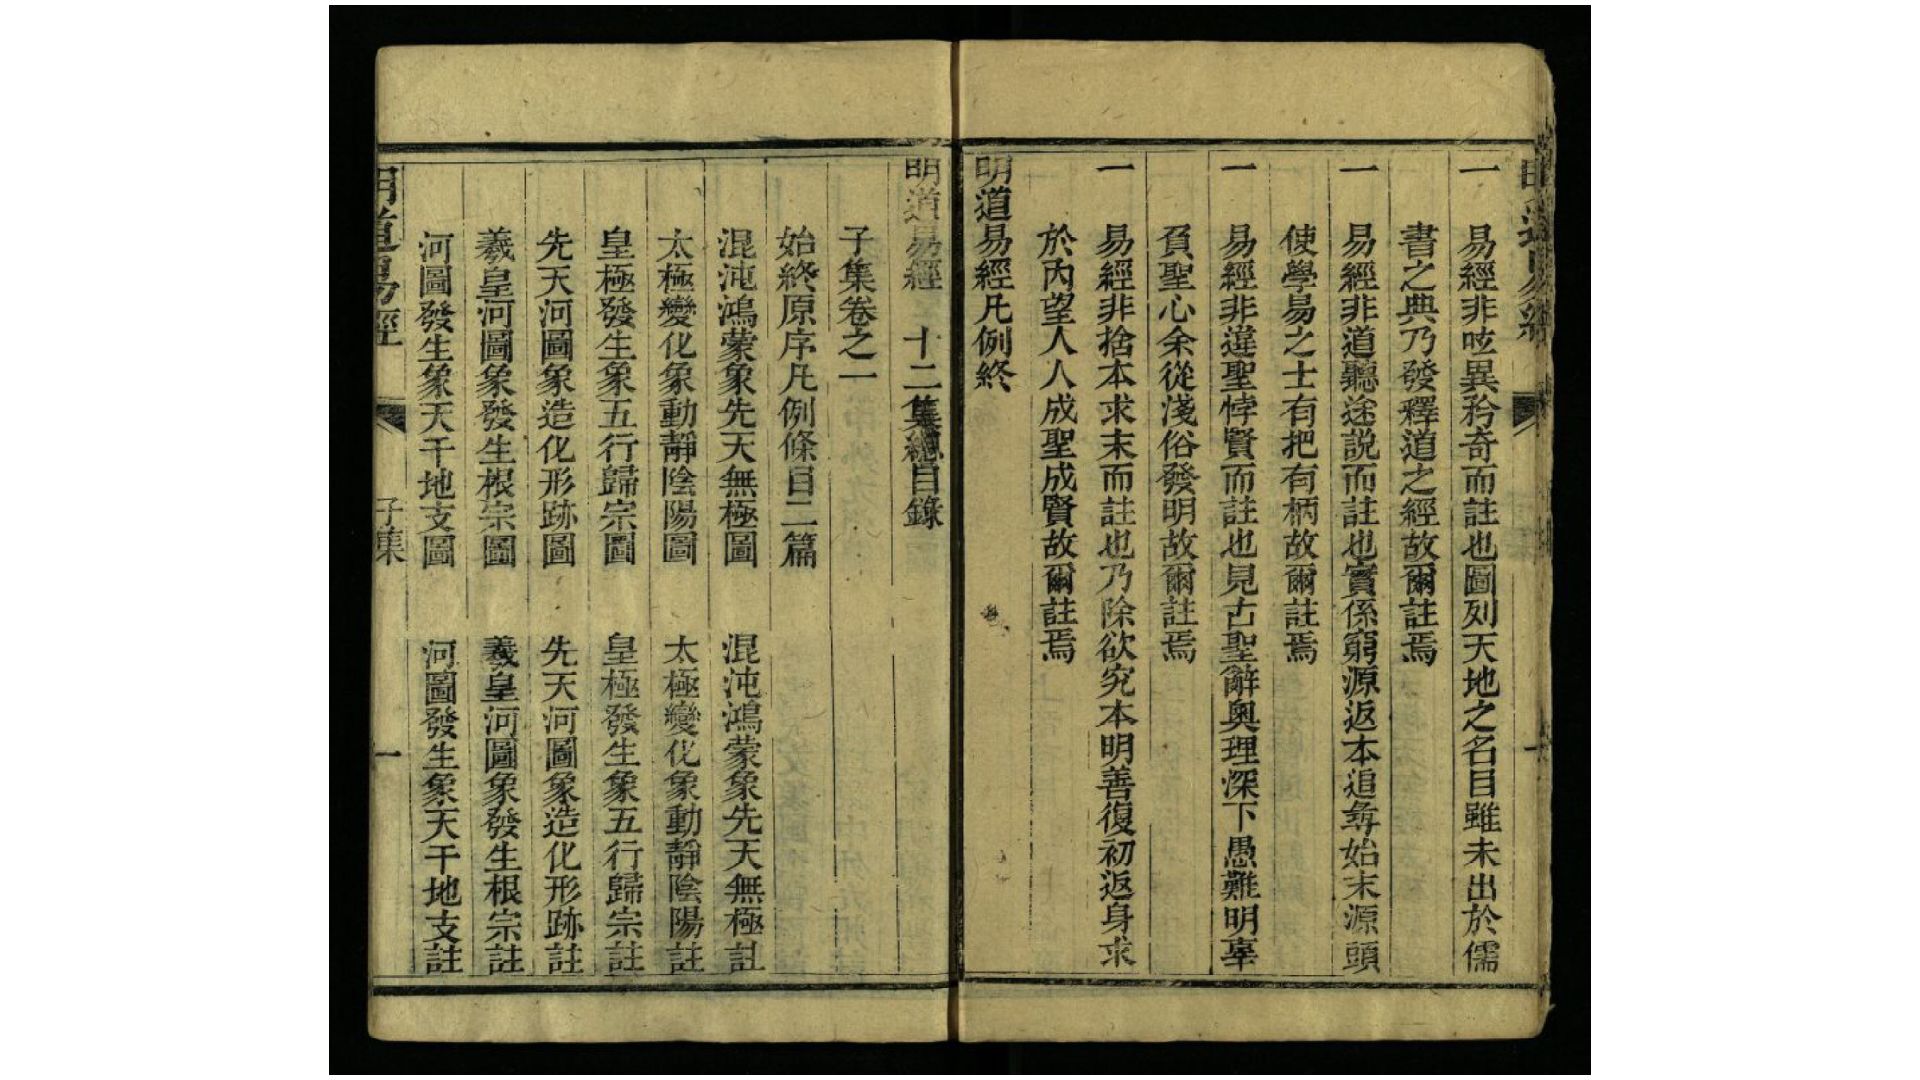 一 易經非呟異矜奇而註也圖列天地之名目雖未出於儒
書之典乃發釋道之經故爾註焉
一 易經非道聽途説而註也實係窮源返本追尋始末源頭
使學易之士有把有柄故爾註焉
一 易經非違聖悖賢而註也見古聖辭奧理深下愚難明辜
負聖心余從淺俗發明故爾註焉
一 易經非捨本求末而註也乃除欲究本明善復初返身求
於內望人人成聖成賢故爾註焉
明道易經凡例終
明道易經 十二集總目錄
子集卷之一
始終原序凡例條目二篇
混沌鴻蒙象先天無極圖 混沌鴻蒙象先天無極註
太極變化象動靜陰陽圖 太極變化象動靜陰陽註
皇極發生象五行歸宗圖 皇極發生象五行歸宗註
先天河圖象造化形跡圖 先天河圖象造化形跡註
羲皇河圖象發生根宗圖 羲皇河圖象發生根宗註
河圖發生象天干地支圖 河圖發生象天干地支註
明道易經 子集 一